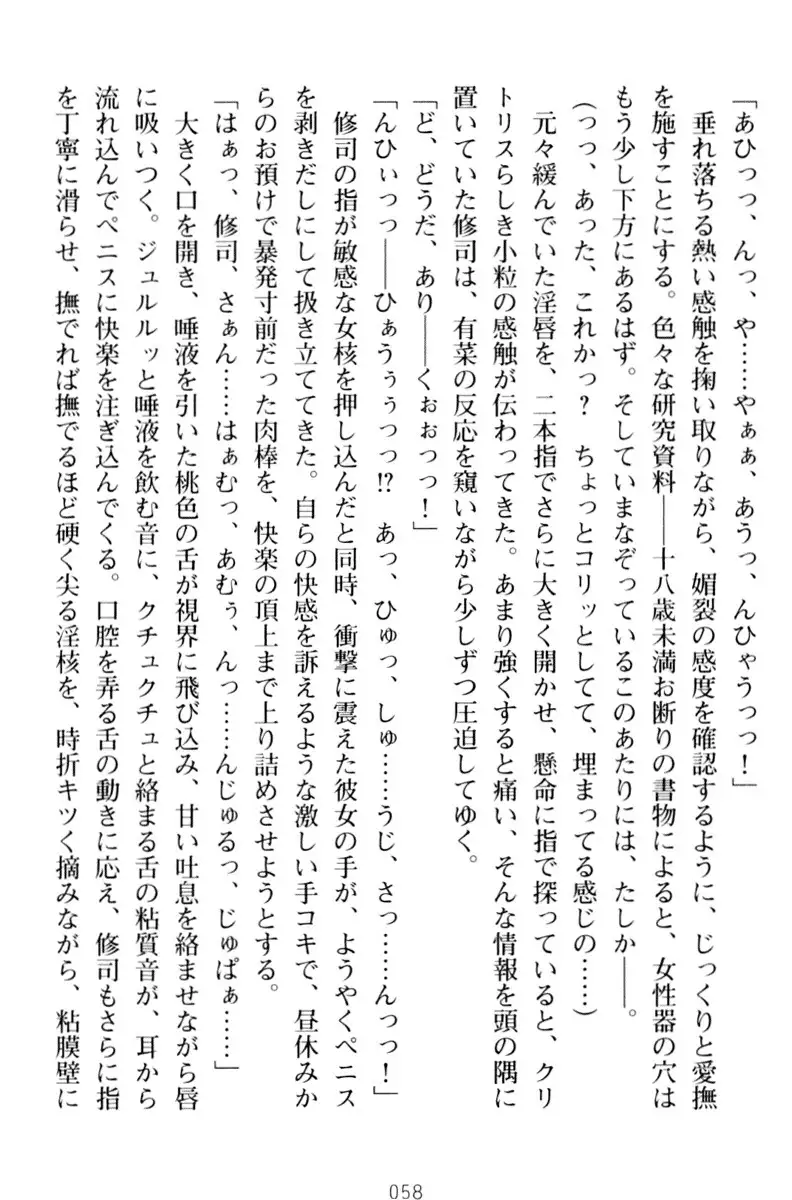 「あひっっ、んっ、や……やぁぁ、あうっ、んひゃうっっ！」
　垂れ落ちる熱い感触を掬い取りながら、媚裂の感度を確認するように、じっくりと愛撫
を施すことにする。色々な研究資料――十八歳未満お断りの書物によると、女性器の穴は
もう少し下方にあるはず。そしていまなぞっているこのあたりには、たしか――。
（っっ、あった、これかっ？　ちょっとコリッとしてて、埋まってる感じの……）
　元々緩んでいた淫唇を、二本指でさらに大きく開かせ、懸命に指で探っていると、クリ
トリスらしき小粒の感触が伝わってきた。あまり強くすると痛い、そんな情報を頭の隅に
置いていた修司は、有菜の反応を窺いながら少しずつ圧迫してゆく。
「ど、どうだ、あり――くぉぉっっ！」
「んひぃっっ――ひぁうぅぅっっ!?　あっ、ひゅっ、しゅ……うじ、さっ……んっっ！」
　修司の指が敏感な女核を押し込んだと同時、衝撃に震えた彼女の手が、ようやくペニス
を剥きだしにして扱き立ててきた。自らの快感を訴えるような激しい手コキで、昼休みか
らのお預けで暴発寸前だった肉棒を、快楽の頂上まで上り詰めさせようとする。
「はぁっ、修司、さぁん……はぁむっ、あむぅ、んっ……んじゅるっ、じゅぱぁ……」
　大きく口を開き、唾液を引いた桃色の舌が視界に飛び込み、甘い吐息を絡ませながら唇
に吸いつく。ジュルルッと唾液を飲む音に、クチュクチュと絡まる舌の粘質音が、耳から
流れ込んでペニスに快楽を注ぎ込んでくる。口腔を弄る舌の動きに応え、修司もさらに指
を丁寧に滑らせ、撫でれば撫でるほど硬く尖る淫核を、時折キツく摘みながら、粘膜壁に
058